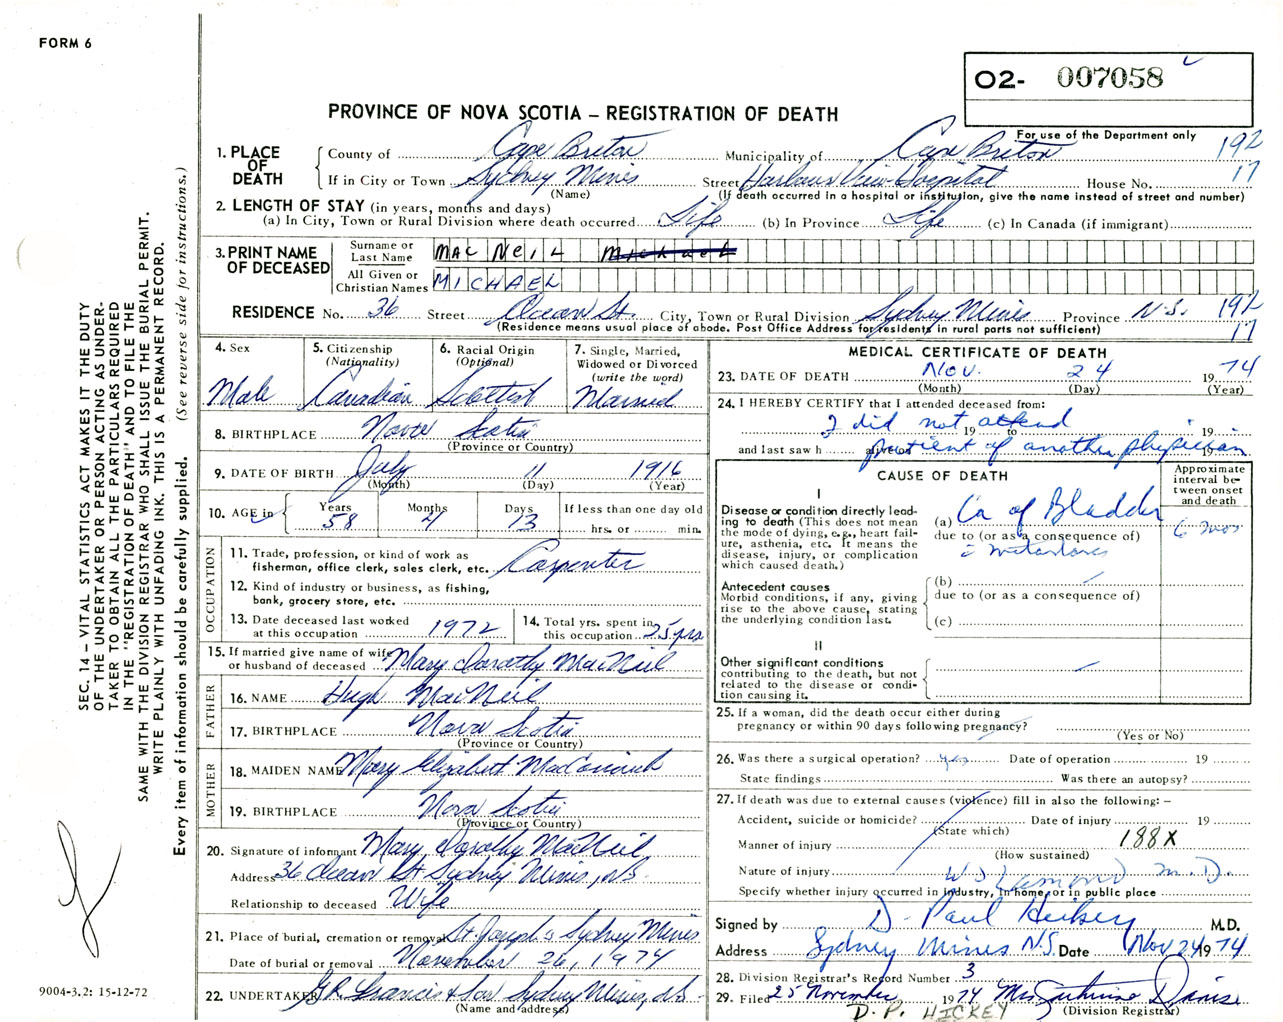 FORM 6
O2- 007058
PROVINCE OF NOVA SCOTIA – REGISTRATION OF DEATH
For use of the Department only
192
17
1. PLACE OF DEATH
County of Cape Breton Municipality of Cape Breton
If in City or Town Sydney Mines Street Harbour View Hospital House No.
(Name) (If death occurred in a hospital or institution, give the name instead of street and number)
2. LENGTH OF STAY (in years, months and days)
(a) In City, Town or Rural Division where death occurred Life (b) In Province Life (c) In Canada (if immigrant)
3. PRINT NAME OF DECEASED
Surname or Last Name MAC NEIL Michael
All Given or Christian Names MICHAEL
RESIDENCE No. 36 Street Ocean St. City, Town or Rural Division Sydney Mines Province N.S. 192
(Residence means usual place of abode. Post Office Address for residents in rural parts not sufficient) 17
4. Sex Male
5. Citizenship (Nationality) Canadian
6. Racial Origin (Optional) Scottish
7. Single, Married, Widowed or Divorced (write the word) Married
8. BIRTHPLACE Nova Scotia
(Province or Country)
9. DATE OF BIRTH July 11 1916
(Month) (Day) (Year)
10. AGE in Years 58 Months 4 Days 13 If less than one day old
hrs. or min.
OCCUPATION
11. Trade, profession, or kind of work as fisherman, office clerk, sales clerk, etc. Carpenter
12. Kind of industry or business, as fishing, bank, grocery store, etc.
13. Date deceased last worked at this occupation 1972
14. Total yrs. spent in this occupation 25 yrs
15. If married give name of wife or husband of deceased Mary Dorothy MacNeil
FATHER
16. NAME Hugh MacNeil
17. BIRTHPLACE Nova Scotia
(Province or Country)
MOTHER
18. MAIDEN NAME Mary Elizabeth MacCormick
19. BIRTHPLACE Nova Scotia
(Province or Country)
20. Signature of informant Mary Dorothy MacNeil
Address 36 Ocean St Sydney Mines, N.S.
Relationship to deceased Wife
21. Place of burial, cremation or removal St. Joseph's Sydney Mines
Date of burial or removal November 26, 1974
22. UNDERTAKER G.R. Francis & Son Sydney Mines, N.S.
(Name and address)
MEDICAL CERTIFICATE OF DEATH
23. DATE OF DEATH Nov. 24 1974
(Month) (Day) (Year)
24. I HEREBY CERTIFY that I attended deceased from:
I did not attend 19 to 19
and last saw h alive on patient of another physician 19
CAUSE OF DEATH
Approximate interval between onset and death
I
Disease or condition directly leading to death (This does not mean the mode of dying, e.g., heart failure, asthenia, etc. It means the disease, injury, or complication which caused death.)
(a) Ca of Bladder 6 mos
due to (or as a consequence of)
c metastases
Antecedent causes
Morbid conditions, if any, giving rise to the above cause, stating the underlying condition last.
(b)
due to (or as a consequence of)
(c)
II
Other significant conditions contributing to the death, but not related to the disease or condition causing it.
25. If a woman, did the death occur either during pregnancy or within 90 days following pregnancy?
(Yes or No)
26. Was there a surgical operation? yes Date of operation 19
State findings Was there an autopsy?
27. If death was due to external causes (violence) fill in also the following: –
Accident, suicide or homicide? Date of injury 19
(State which)
Manner of injury 188X
(How sustained)
Nature of injury M.D.
Specify whether injury occurred in industry, in home, or in public place
Signed by D. Paul Hickey M.D.
Address Sydney Mines N.S. Date Nov 24 1974
28. Division Registrar's Record Number 3
29. Filed 25 November 1974 Mrs Davis
(Division Registrar)
D.P. HICKEY
SEC. 14 – VITAL STATISTICS ACT MAKES IT THE DUTY
OF THE UNDERTAKER OR PERSON ACTING AS UNDER-
TAKER TO OBTAIN ALL THE PARTICULARS REQUIRED
IN THE "REGISTRATION OF DEATH" AND TO FILE THE
SAME WITH THE DIVISION REGISTRAR WHO SHALL ISSUE THE BURIAL PERMIT.
WRITE PLAINLY WITH UNFADING INK. THIS IS A PERMANENT RECORD.
Every item of information should be carefully supplied. (See reverse side for instructions.)
9004-3.2: 15-12-72